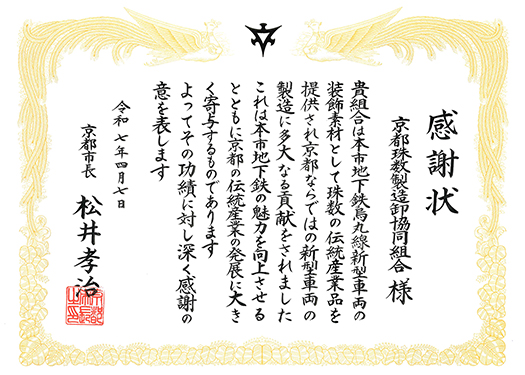 感謝状
京都珠数製造卸協同組合 様
貴組合は本市地下鉄烏丸線新型車両の
装飾素材として珠数の伝統産業品を
提供され京都ならではの新型車両の
製造に多大なる貢献をされました
これは本市地下鉄の魅力を向上させる
とともに京都の伝統産業の発展に大き
く寄与するものであります
よってその功績に対し深く感謝の
意を表します
令和七年四月七日
京都市長 松井孝治